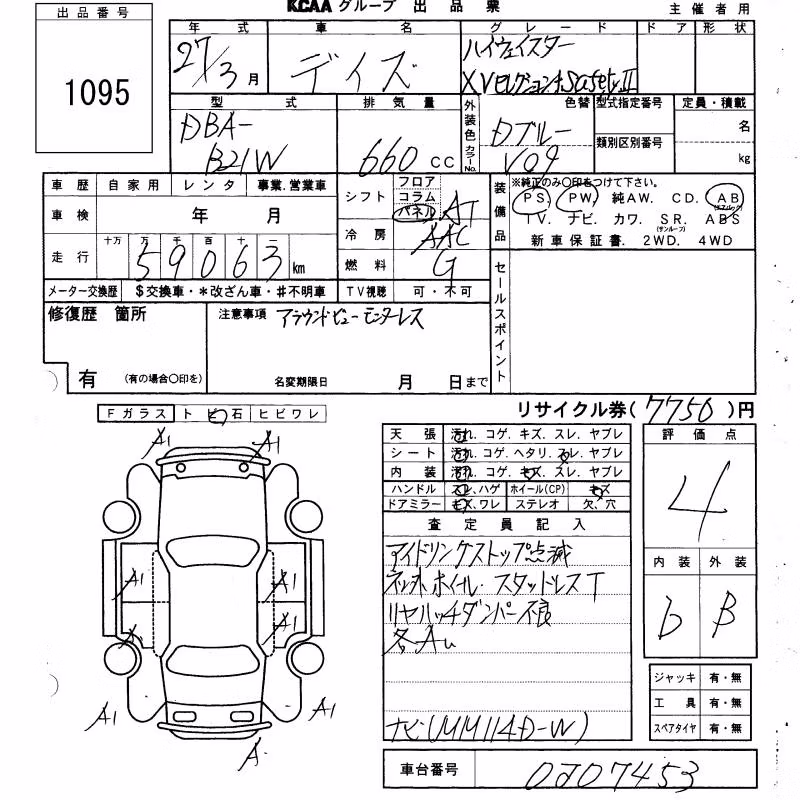 KCAA グループ 出品票 主催者用
出品番号
1095
年式 車名 グレード ドア 形状
27/3月 デイズ ハイウェイスター
XVセレクション+SafetyⅡ
型式 排気量 外装色 カラーNo. 色替 型式指定番号 定員・積載
DBA-
B21W 660cc Dブルー
V09 類別区別番号 名
kg
車歴 自家用 レンタ 事業.営業車
車検 年 月
走行 十万 万 千 百 十 一
59063km
メーター交換歴 $交換車・*改ざん車・#不明車
シフト フロア
コラム
パネル AT
冷房 AAC
燃料 G
TV視聴 可・不可
装備品 ※純正のみ〇印をつけて下さい。
PS. PW. 純AW. CD. AB(エアバック)
TV. ナビ. カワ. SR.(サンルーフ) ABS
新車保証書. 2WD. 4WD
セールスポイント
修復歴 箇所
有 (有の場合〇印を)
注意事項 アラウンドビューモニターレス
名変期限日 月 日まで
リサイクル券(7750)円
Fガラス トビ石 ヒビワレ
A1 A1
A1 A1
A1
A1 A1
A
天張 汚れ. コゲ. キズ. スレ. ヤブレ
シート 汚れ. コゲ. ヘタリ. スレ. ヤブレ
内装 汚れ. コゲ. キズ. スレ. ヤブレ
ハンドル スレ.ハゲ ホイール(CP) キズ
ドアミラー キズ.ワレ ステレオ 欠.穴
査定員記入
アイドリングストップ点滅
ネッ外ホイール・スタッドレスT
リヤハッチダンパー不良
各Au
ナビ(MM114D-W)
評価点
4
内装 外装
b B
ジャッキ 有・無
工具 有・無
スペアタイヤ 有・無
車台番号 0J07453